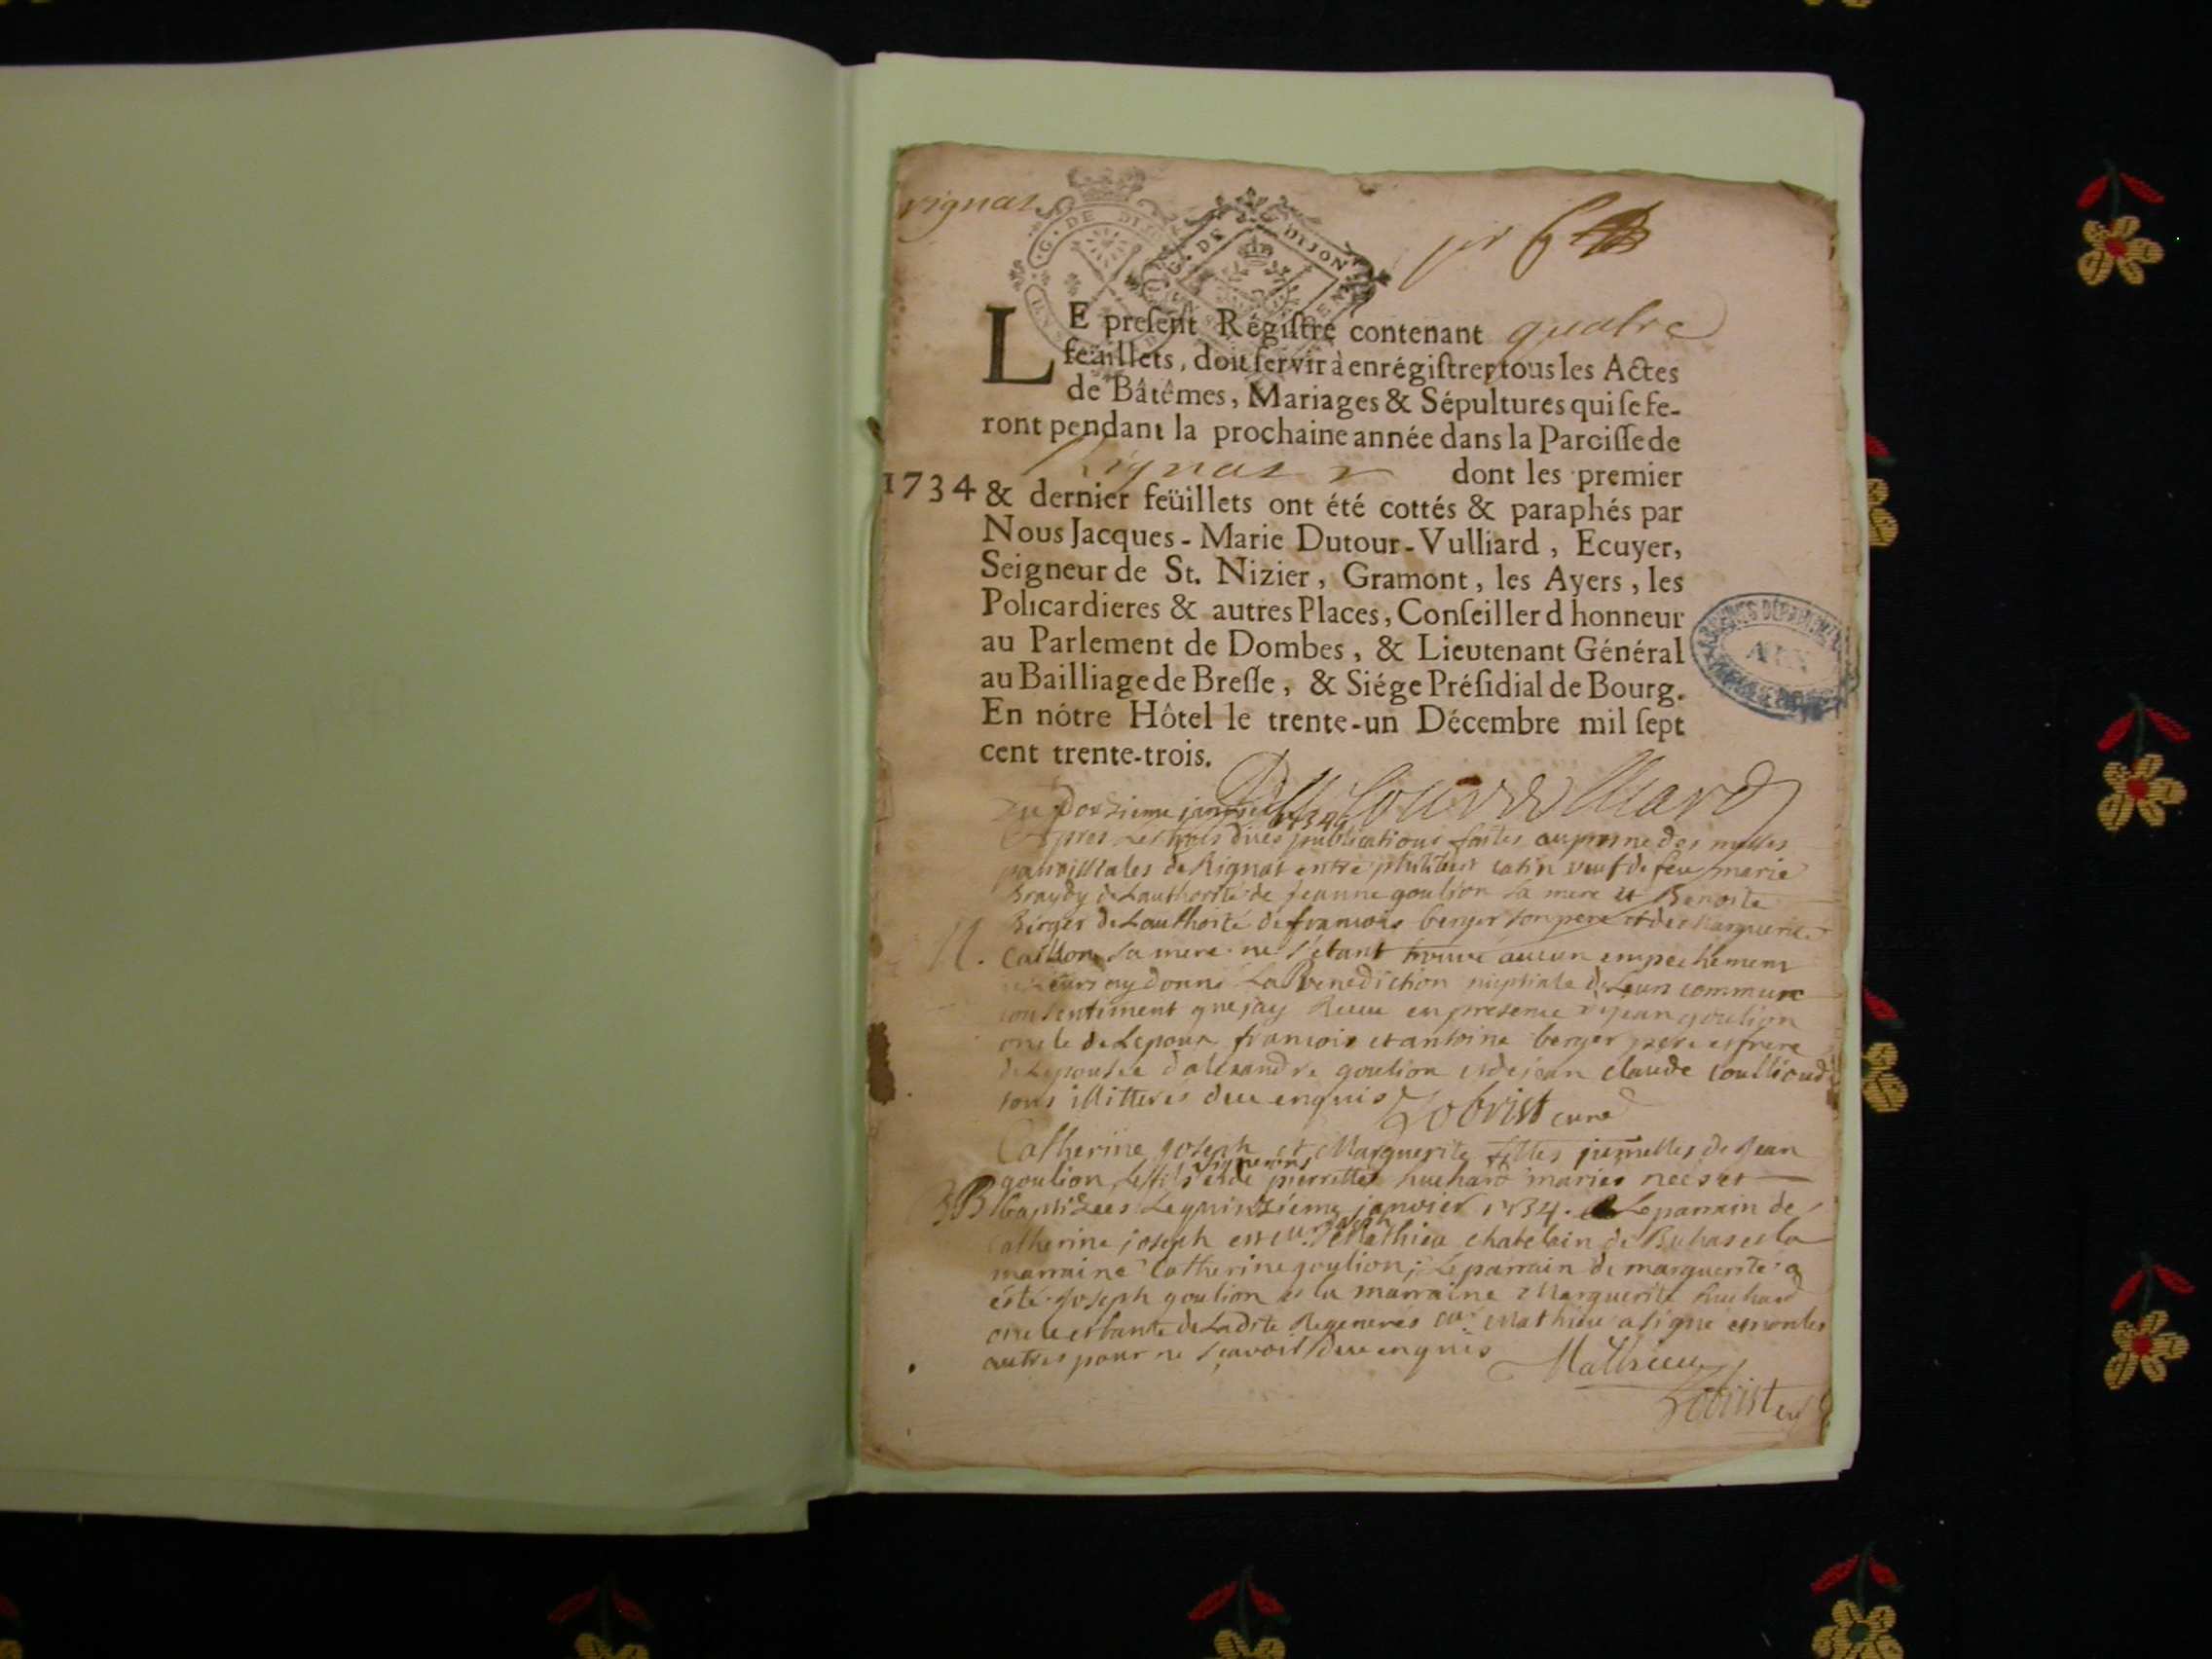 rignat
G. DE DIJON
G. DE DIJON
LE preſent Régiſtre contenant quatre
feüillets, doit ſervir à enrégiſtrer tous les Actes
de Bâtêmes, Mariages & Sépultures qui ſe fe-
ront pendant la prochaine année dans la Paroiſſe de
Rignat dont les premier
1734 & dernier feüillets ont été cottés & paraphés par
Nous Jacques-Marie Dutour-Vulliard, Ecuyer,
Seigneur de St. Nizier, Gramont, les Ayers, les
Policardieres & autres Places, Conſeiller d honneur
au Parlement de Dombes, & Lieutenant Général
au Bailliage de Breſſe, & Siége Préſidial de Bourg.
En nôtre Hôtel le trente-un Décembre mil ſept
cent trente-trois.
janvier 1734
Apres Les trois dites publications faites au prone des messes
parroissiales de Rignat entre philibert catin veuf de feue marie
de Lauthorité de jeanne goulion sa mere et Benoite
Berger de Lauthorité de francois berger son pere et de Marguerite
sa mere ne s'étant trouvé aucun empechement
ay donné La Benediction nuptiale de Leur commun
consentement que jay Receu en presence de jean goulion
oncle de Lepoux francois et antoine berger pere et frere
de Lepousée d'alexandre goulion et de jean claude coullioud
tous illitterés de ce enquis Lobrist curé
Catherine joseph et Marguerite filles jumelles de Jean
goulion vigneron et de pierrette huchard mariés nées et
B Baptizées Le quinzième janvier 1734. Le parrain de
Catherine joseph est Mathieu chatelain de et la
marraine Catherine goulion; Le parrain de marguerite a
été joseph goulion et la marraine Marguerite huchard
oncle et tante de Ladite Mathieu a signé et non les
autres pour ne sçavoir de ce enquis Mathieu
Lobrist curé
ARCHIVES DÉPARTEMENTALES
AIN